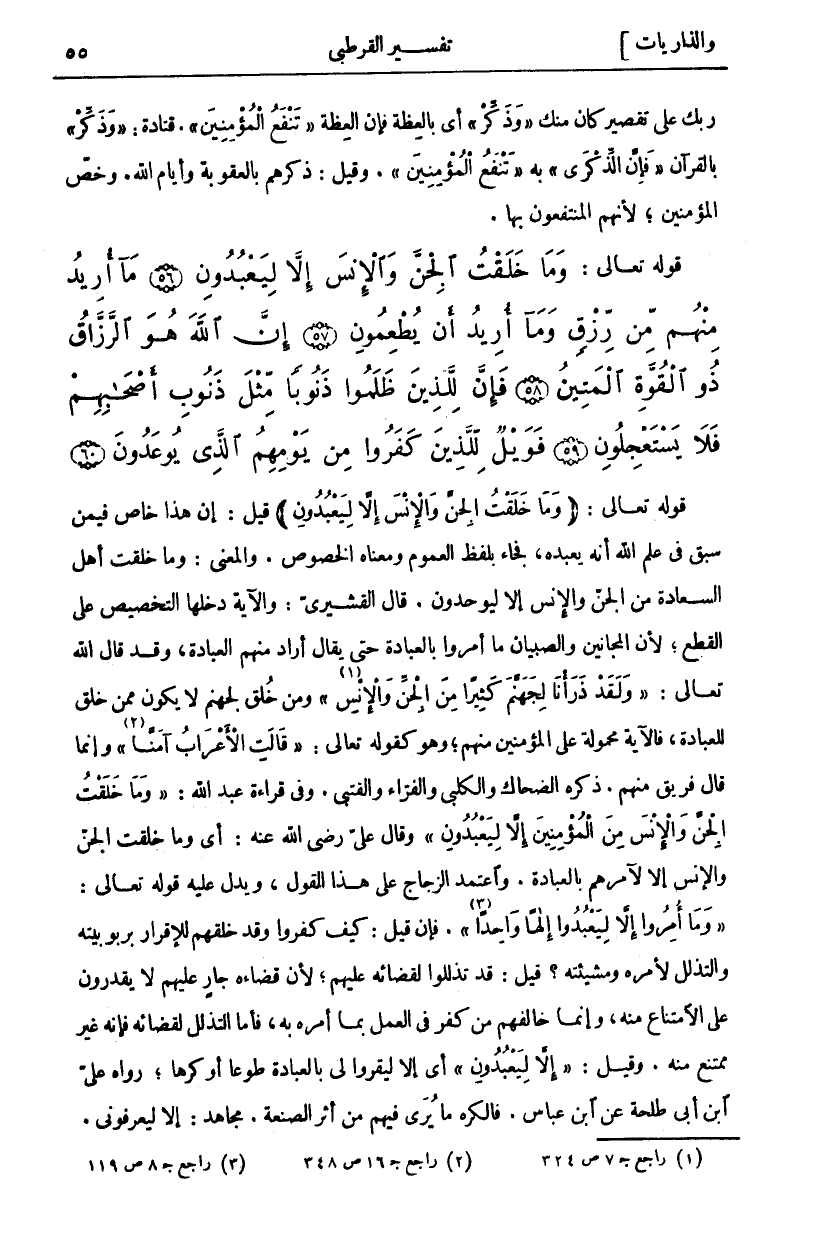 والذاريات ] تفســير القرطبى ٥٥
ربك على تقصير كان منك «وَذَكِّرْ» أى بالعظة فإن العظة « تَنْفَعُ الْمُؤْمِنِينَ» . قتادة : «وَذَكِّرْ»
بالقرآن « فَإِنَّ الذِّكْرَى » به « تَنْفَعُ الْمُؤْمِنِينَ » . وقيل : ذكرهم بالعقوبة وأيام الله . وخصّ
المؤمنين ؛ لأنهم المنتفعون بها .
قوله تعـالى : وَمَا خَلَقْتُ ٱلْجِنَّ وَٱلْإِنسَ إِلَّا لِيَعْبُدُونِ ۝٥٦ مَآ أُرِيدُ
مِنْهُم مِّن رِّزْقٍ وَمَآ أُرِيدُ أَن يُطْعِمُونِ ۝٥٧ إِنَّ ٱللَّهَ هُوَ ٱلرَّزَّاقُ
ذُو ٱلْقُوَّةِ ٱلْمَتِينُ ۝٥٨ فَإِنَّ لِلَّذِينَ ظَلَمُوا ذَنُوبًا مِّثْلَ ذَنُوبِ أَصْحَـٰبِهِمْ
فَلَا يَسْتَعْجِلُونِ ۝٥٩ فَوَيْلٌ لِّلَّذِينَ كَفَرُوا مِن يَوْمِهِمُ ٱلَّذِى يُوعَدُونَ ۝٦٠
قوله تعـالى : ﴿ وَمَا خَلَقْتُ الْجِنَّ وَالْإِنْسَ إِلَّا لِيَعْبُدُونِ ﴾ قيل : إن هذا خاص فيمن
سبق فى علم الله أنه يعبده، فجاء بلفظ العموم ومعناه الخصوص . والمعنى : وما خلقت أهل
السـعادة من الجنّ والإنس إلا ليوحدون . قال القشيرىّ : والآية دخلها التخصيص على
القطع ؛ لأن المجانين والصبيان ما أمروا بالعبادة حتى يقال أراد منهم العبادة، وقـد قال الله
تعـالى : « وَلَقَدْ ذَرَأْنَا لِجَهَنَّمَ كَثِيرًا مِنَ الْجِنِّ وَالْإِنْسِ (١) » ومن خُلق لجهنم لا يكون ممن خلق
للعبادة، فالآية محمولة على المؤمنين منهم؛ وهو كقوله تعالى : « قَالَتِ الْأَعْرَابُ آمَنَّا (٢) » وإنما
قال فريق منهم . ذكره الضحاك والكلبى والفرّاء والقتبى . وفى قراءة عبد الله : « وَمَا خَلَقْتُ
الْجِنَّ وَالْإِنْسَ مِنَ الْمُؤْمِنِينَ إِلَّا لِيَعْبُدُونِ » وقال علىّ رضى الله عنه : أى وما خلقت الجنّ
والإنس إلا لآمرهم بالعبادة . وٱعتمد الزجاج على هـذا القول ، ويدل عليه قوله تعـالى :
« وَمَا أُمِرُوا إِلَّا لِيَعْبُدُوا إِلٰهًا وَاحِدًا (٣) » . فإن قيل : كيف كفروا وقد خلقهم للإقرار بربوبيته
والتذلل لأمره ومشيئته ؟ قيل : قد تذللوا لقضائه عليهم؛ لأن قضاءه جارٍ عليهم لا يقدرون
على الٱمتناع منه، وإنمـا خالفهم من كفر فى العمل بمـا أمره به، فأما التذلل لقضائه فإنه غير
ممتنع منه . وقيـل : « إِلَّا لِيَعْبُدُونِ » أى إلا ليقروا لى بالعبادة طوعا أو كرها ؛ رواه علىّ
ٱبن أبى طلحة عن ٱبن عباس . فالكره ما يُرَى فيهم من أثر الصنعة . مجاهد : إلا ليعرفونى .
(١) راجع جـ ٧ ص ٣٢٤ (٢) راجع جـ ١٦ ص ٣٤٨ (٣) راجع جـ ٨ ص ١١٩